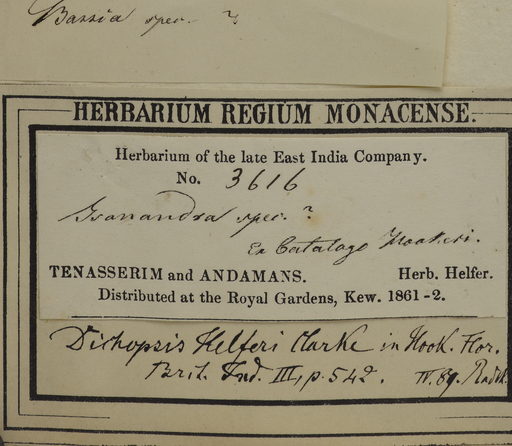 Bassia spec. ?
HERBARIUM REGIUM MONACENSE.
Herbarium of the late East India Company.
No. 3616
Isonandra spec. ?
Ex Catalogo Hookeri.
TENASSERIM and ANDAMANS. Herb. Helfer.
Distributed at the Royal Gardens, Kew. 1861-2.
Dichopsis Helferi Clarke in Hook. Flor.
Brit. Ind. III, p. 542. IV. 89. Radlk.